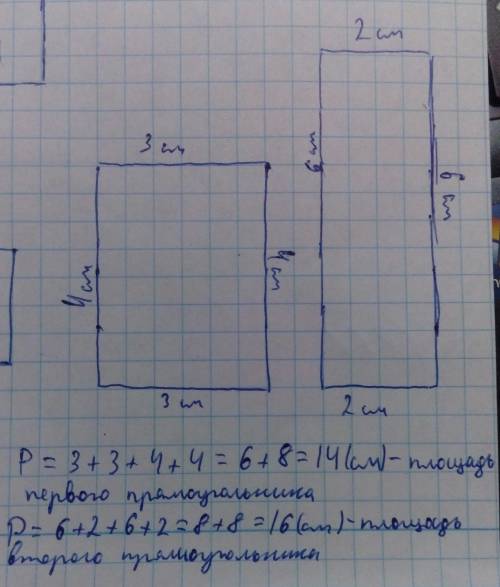 2 см
6 см
6 см
3 см
4 см
4 см
3 см
2 см
P = 3 + 3 + 4 + 4 = 6 + 8 = 14 (см) - площадь
первого прямоугольника
P = 6 + 2 + 6 + 2 = 8 + 8 = 16 (см) - площадь
второго прямоугольника